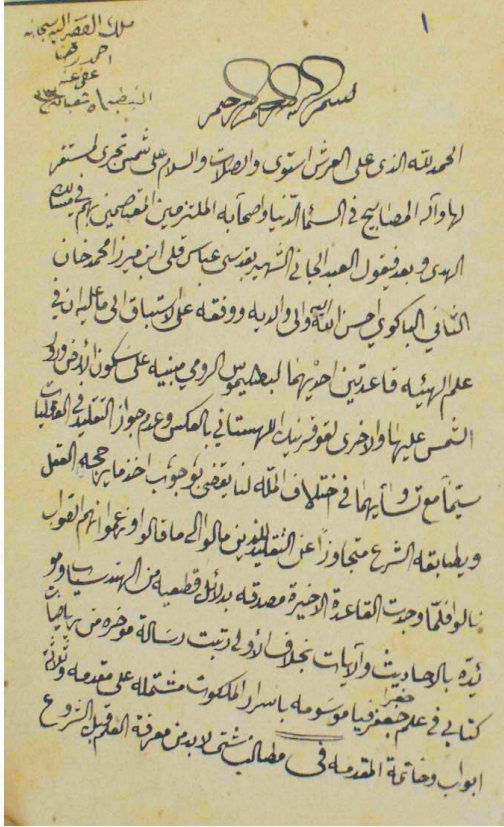 ١
ملك الفقير اليه سبحانه
احمد رضا
عفى عنه
بسم الله الرحمن الرحيم
الحمد لله الذى على العرش استوى والصلات والسلام على شمس تجرى لمستقر
لها وآله المصابيح فى السماء الدنيا واصحابه الملتزمين المقتصين بهم فى مسالك
الهدى وبعد فيقول العبد الجانى الشهير بقدسى عباس قلى ابن ميرزا محمد خان
الثانى الباكوى احسن الله اليه والى والديه ووفقه على استباق الى ما عليه ان فى
علم الهيئه قاعدتين احديهما لبطلميوس الرومى مبنيه على سكون الأرض ودور
الشمس عليها والاخرى لقوفرنيك اللهستانى بالعكس وعدم جواز التقليد فى العقليات
سيما مع تشابههما فى اختلاف الملة لنا يقضى بوجوب اخذ ما يرجحه العقل
ويطابقه الشرع متجاوزا عن التقليد للذين مالوا الى ما قالوا وزعموا انهم لصواب
نالوا فلما وجدت القاعدة الاخيرة مصدقه بدلائل قطعيه من الهندسيات ومو
يده بالاحاديث والآيات بخلاف الأولى رتبت رسالة مؤخره من
كتابى فى علم جغرافيا موسومه باسرار الملكوت مشتمله على مقدمه وثلثة
ابواب وخاتمة المقدمه فى مطالب شتى لابد من معرفة العلم قبل الشروع